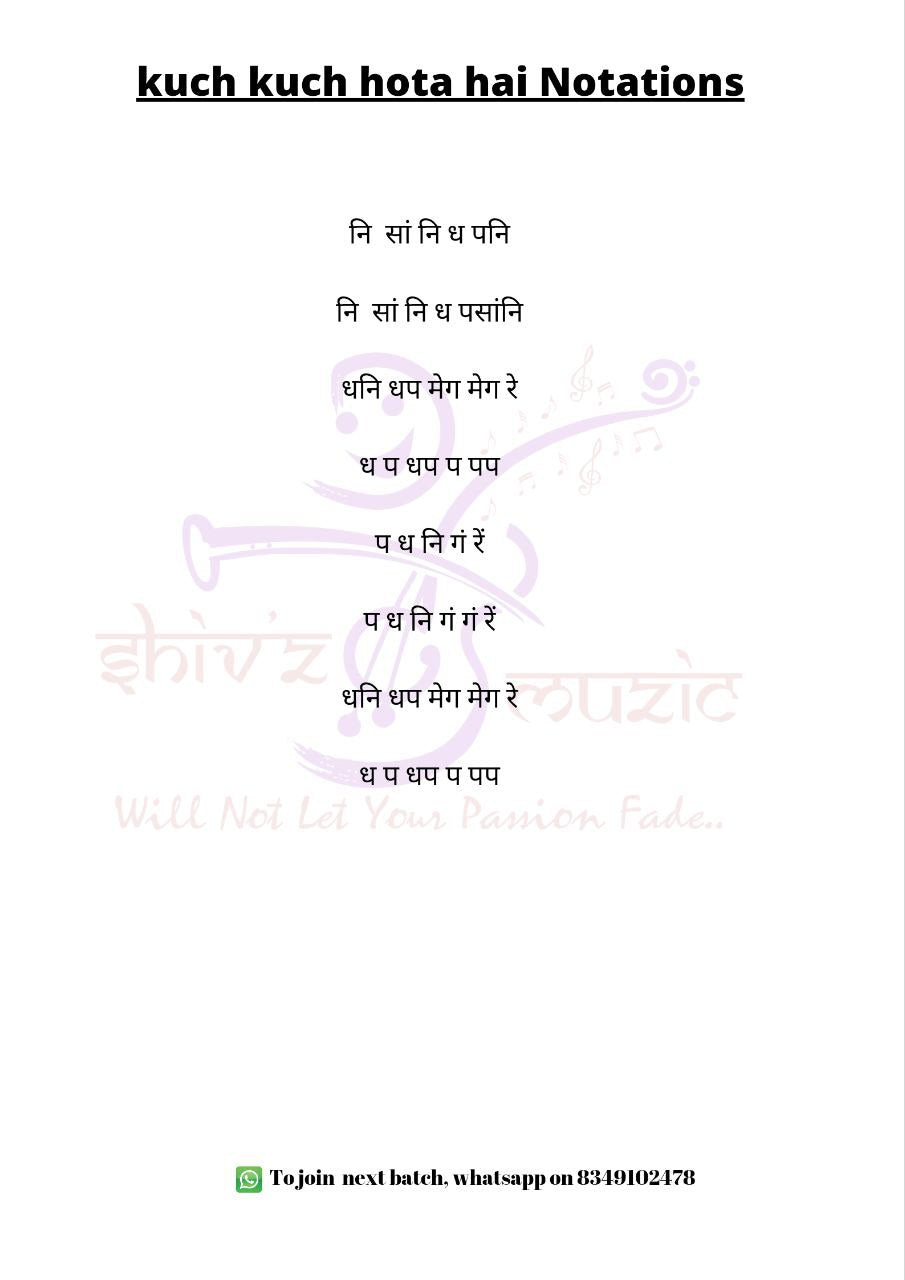 kuch kuch hota hai Notations
नि सां नि ध पनि
नि सां नि ध पसांनि
धनि धप मेग मेग रे
ध प धप प पप
प ध नि गं रें
प ध नि गं गं रें
shiv'z muzic
धनि धप मेग मेग रे
ध प धप प पप
Will Not Let Your Passion Fade..
To join next batch, whatsapp on 8349102478